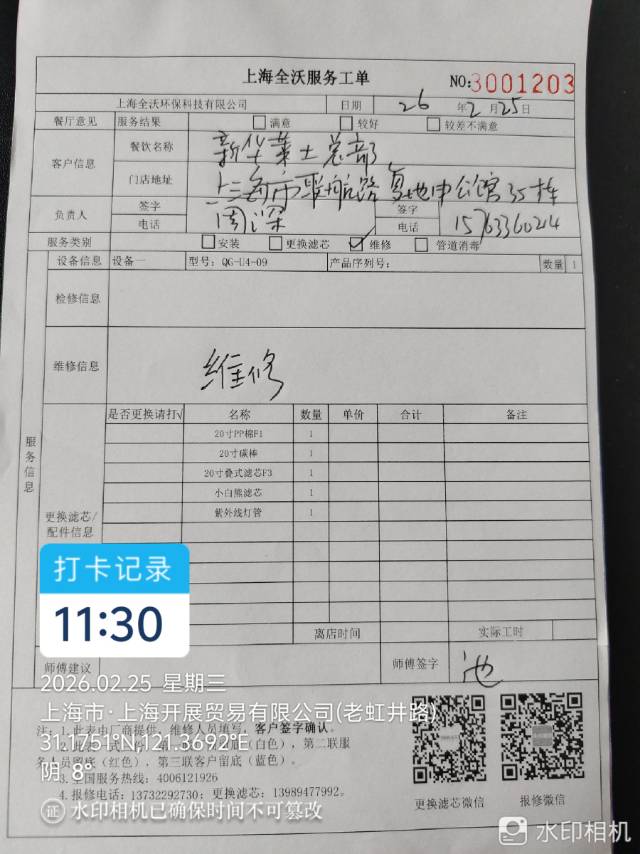 上海全沃服务工单 NO:3001203
上海全沃环保科技有限公司 日期 26年2月25日
餐厅意见 服务结果 满意 较好 较差不满意
客户信息 餐饮名称 新华莱士总部
门店地址 上海市聚航路复地申公馆35栋
负责人 签字 周深 签字
电话 电话 15763360214
服务类别 安装 更换滤芯 维修 管道消毒
设备信息 设备一 型号: QG-U4-09 产品序列号: 数量 1
检修信息
维修信息 维修
服务信息
更换滤芯/配件信息
是否更换请打√ 名称 数量 单价 合计 备注
20寸PP棉F1 1
20寸碳棒 1
20寸叠式滤芯F3 1
小白熊滤芯 1
紫外线灯管 1
打卡记录
11:30
离店时间 实际工时
师傅建议 师傅签字 池
2026.02.25 星期三
上海市·上海开展贸易有限公司(老虹井路)
31.1751°N,121.3692°E
阴 8°
注: 1.此表由厂商提供, 维修人员填写, 客户签字确认。
(白色), 第二联服
务人员留底(红色), 第三联客户留底(蓝色)。
3.全国服务热线: 4006121926
4.报修电话: 13732292730; 更换滤芯: 13989477992。
更换滤芯微信 报修微信
证 水印相机已确保时间不可篡改
水印相机